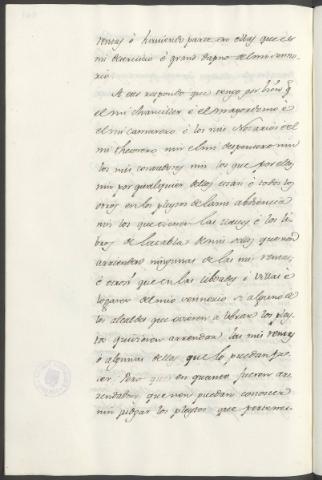 rentas ó haviendo parte en ellas que es
mi deservicio é grand dagno del mi sennorio
A esto respondo que tengo por bien q
el mi Chanciller ó el mayordomo é
el mi camarero é los mis Notarios é el
mi thesorero nin el mi despensero nin
los mis contadores nin los que por ellos
nin por qualquier dellos están ó todos los
otros en los pleytos de la mi abdiencia
nin los que tienen las rentas é los li
bros de la cabla de mis rentas que non
arrienden ningunas de las mis rentas,
é otrosí que en las cibdades é villas é
logares del mio sennorio si alguno de
los alcaldes que ovieren á librar los pley
tos quisieren arrendar las mis rentas
ó algunas dellas que lo puedan fa
cer. Pero que en quanto fueren arre
rendadores que non puedan conoscer
nin judgar los pleytos que pertenes